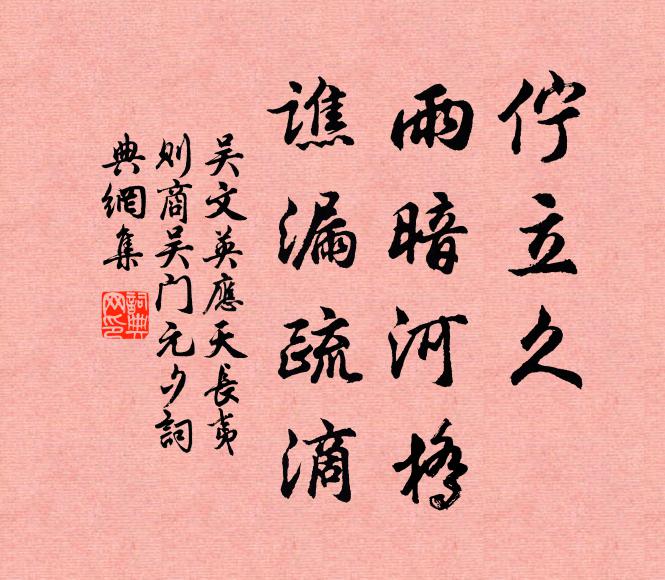 佇立久
雨暗河橋
譙漏疏滴
吴文英應天長夷
则商吴门元夕詞
典網集
詞典網印